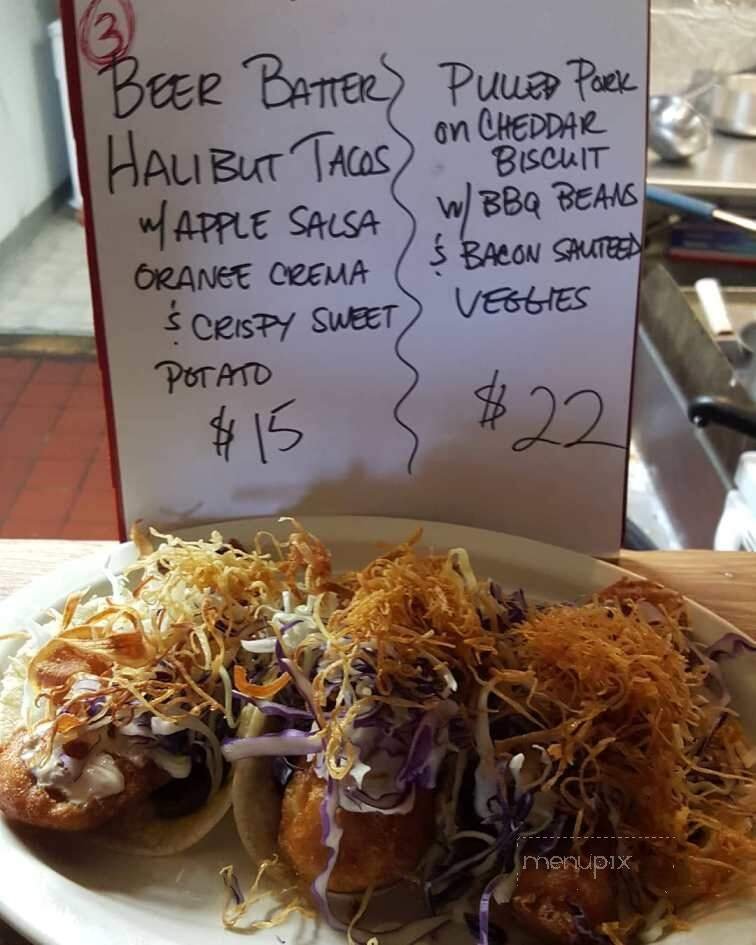 3
BEER BATTER
HALIBUT TACOS
w/ APPLE SALSA
ORANGE CREMA
& CRISPY SWEET
POTATO
$15
PULLED PORK
on CHEDDAR
BISCUIT
w/ BBQ BEANS
& BACON SAUTEED
VEGGIES
$22
menupix